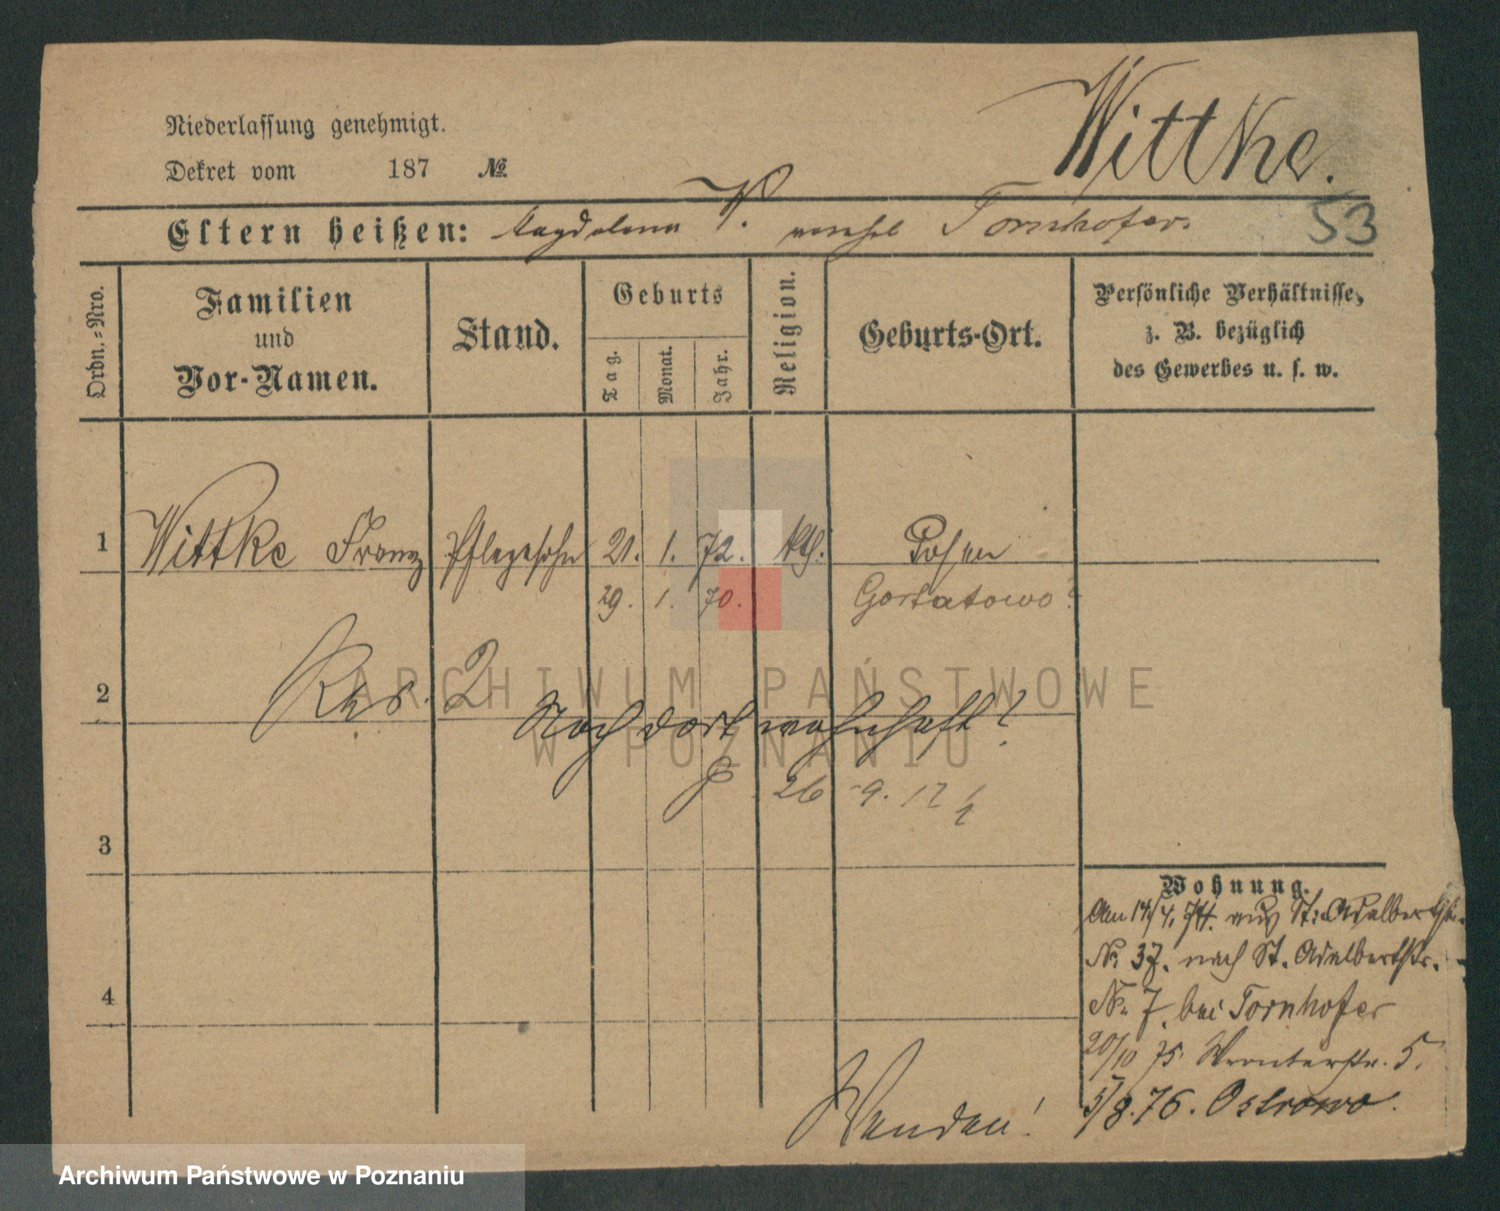 Wittke.
Niederlassung genehmigt.
Dekret vom 187 №
Eltern heißen: Magdalena W. Tornhofer.
53
Ordn.-Nro.
Familien
und
Vor-Namen.
Stand.
Geburts
Tag.
Monat.
Jahr.
Religion.
Geburts-Ort.
Persönliche Verhältnisse,
z. B. bezüglich
des Gewerbes u. s. w.
1 Wittke Franz Pflegesohn 21. 1. 72. kth. Posen
29. 1. 70. Gortatowo?
2 Res. 2
Noch dort wohnhaft?
26 9. 12
3
Wohnung.
Am 14/4. 74. aus St. Adalbertstr.
№ 37. nach St. Adalbertstr.
4
№ 7. bei Tornhofer
20/10 75. Wronkerstr. 5.
5/8. 76. Ostrowo.
Wenden!
ARCHIWUM PAŃSTWOWE
W POZNANIU
Archiwum Państwowe w Poznaniu